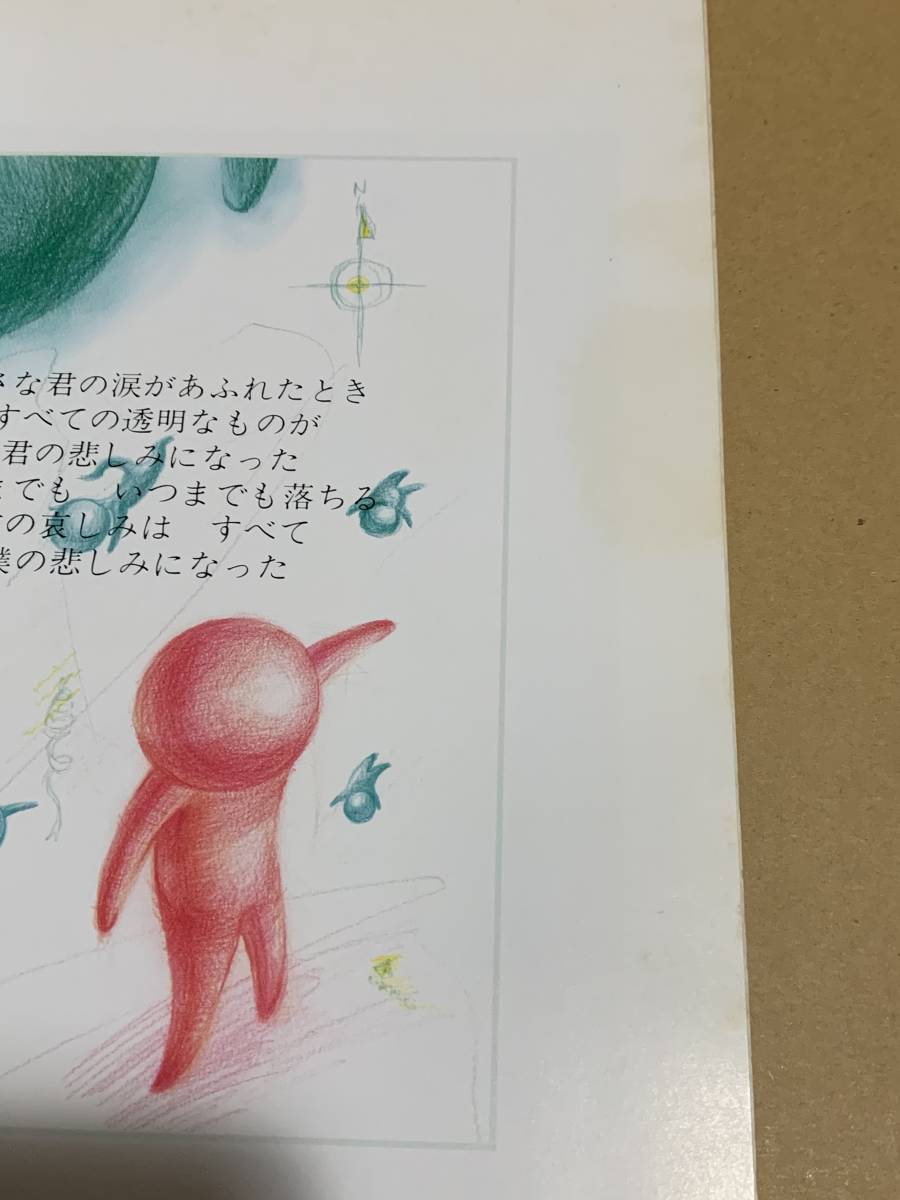 N
さな君の涙があふれたとき
すべての透明なものが
君の悲しみになった
までも　いつまでも落ちる
の哀しみは　すべて
僕の悲しみになった